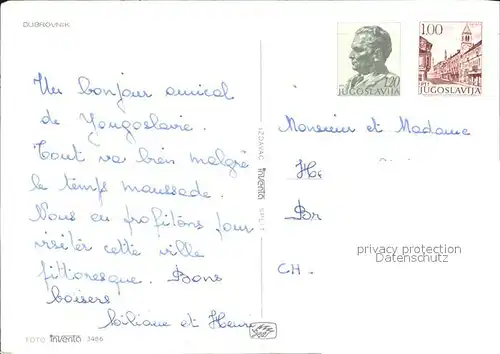 DUBROVNIK
Un bonjour amical
de Yougoslavie.
Tout va bien malgré
le temps maussade.
Nous en profitons pour
visiter cette ville
pittoresque. Bons
baisers
Liliane et Henri
FOTO inventa 3486
IZDAVAC inventa SPLIT
1.20
JUGOSLAVIJA
1.00
JUGOSLAVIJA
Monsieur et Madame
CH-
privacy protection
Datenschutz